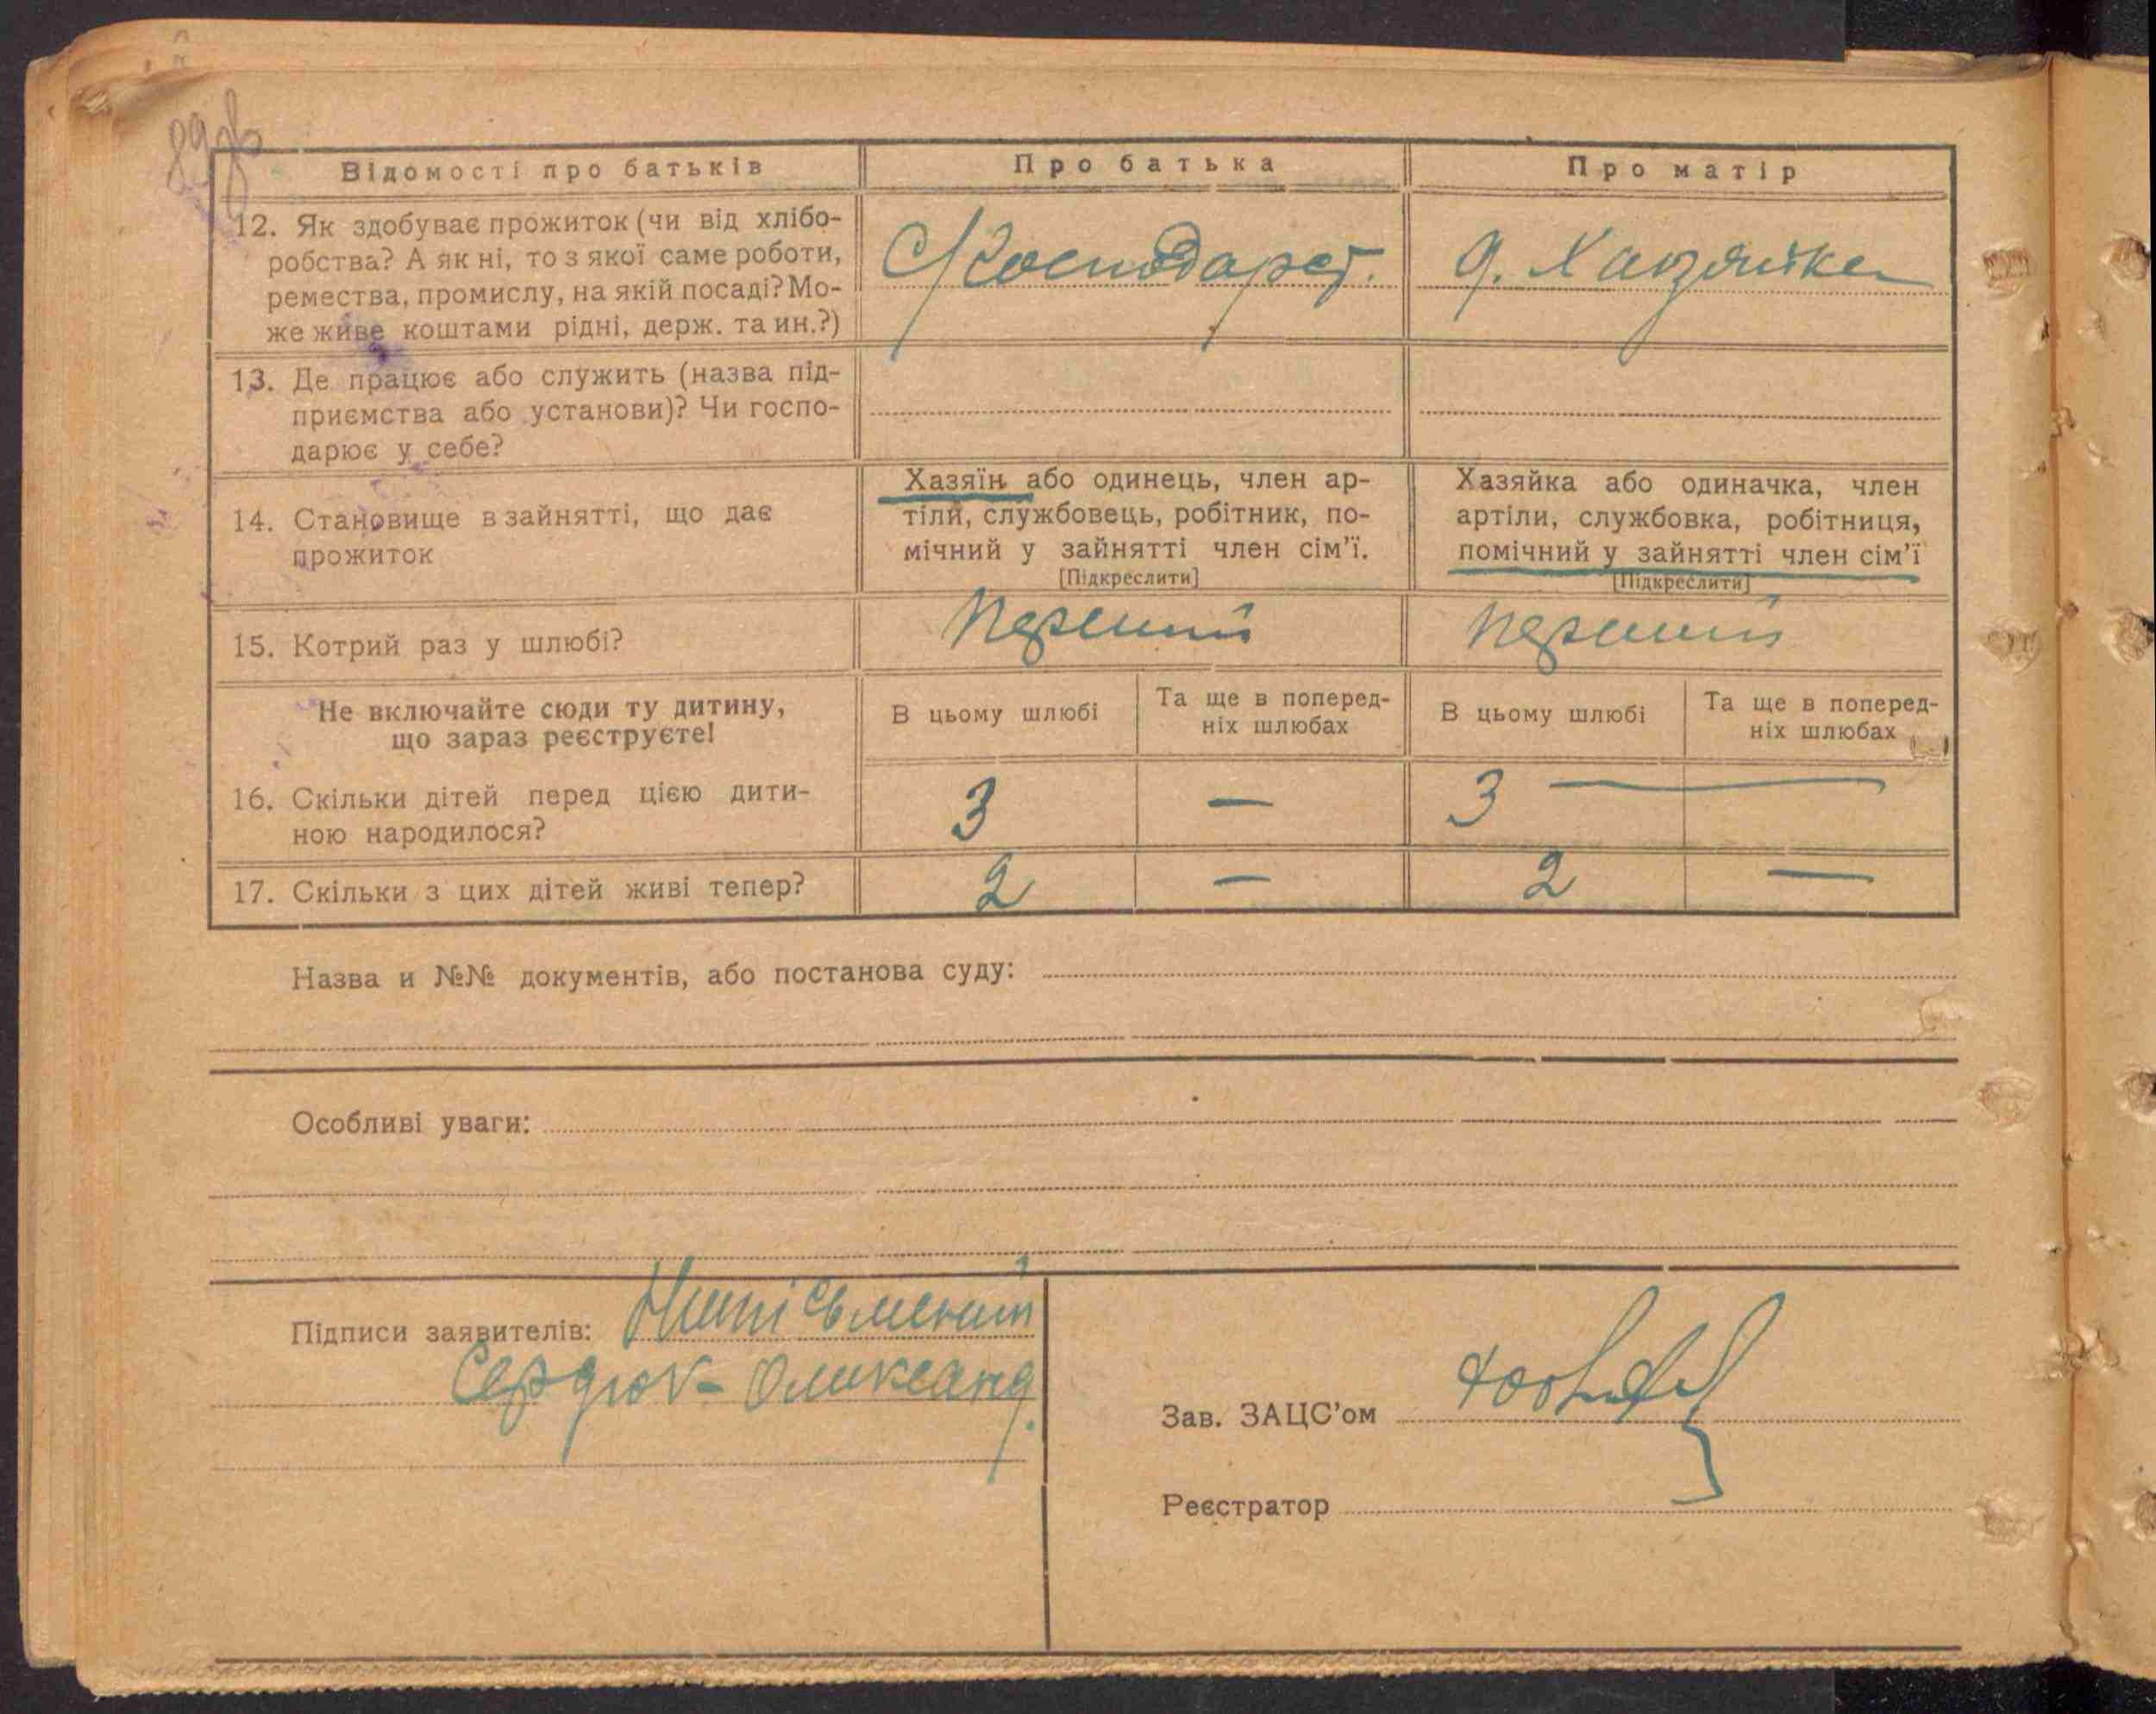 89 зв
Відомості про батьків
Про батька
Про матір
12. Як здобуває прожиток (чи від хлібо-
робства? А як ні, то з якої саме роботи,
ремества, промислу, на якій посаді? Мо-
же живе коштами рідні, держ. та ин.?)
С/Господарст.
д. Хазяйка
13. Де працює або служить (назва під-
приємства або установи)? Чи госпо-
дарює у себе?
14. Становище в зайнятті, що дає
прожиток
Хазяїн або одинець, член ар-
тіли, службовець, робітник, по-
мічний у зайнятті член сім'ї.
[Підкреслити]
Хазяйка або одиначка, член
артіли, службовка, робітниця,
помічний у зайнятті член сім'ї
[Підкреслити]
15. Котрий раз у шлюбі?
Перший
Перший
Не включайте сюди ту дитину,
що зараз реєструєте!
В цьому шлюбі
Та ще в поперед-
ніх шлюбах
В цьому шлюбі
Та ще в поперед-
ніх шлюбах
16. Скільки дітей перед цією дити-
ною народилося?
3
—
3 —
17. Скільки з цих дітей живі тепер?
2
—
2
—
Назва и №№ документів, або постанова суду:
Особливі уваги:
Підписи заявителів: Нипісьмений
Сердюк Олександ.
Зав. ЗАЦС'ом
Реєстратор